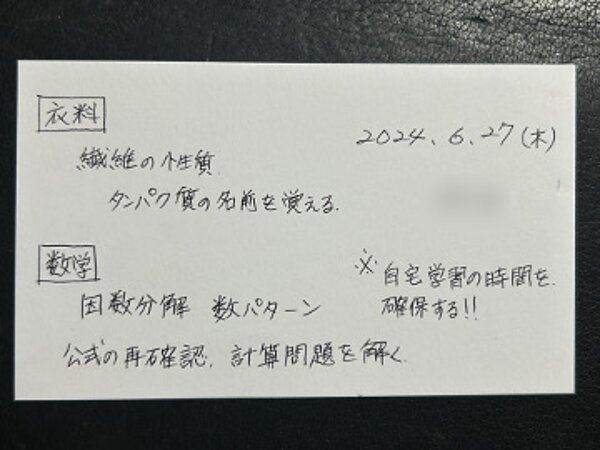 衣料
2024.6.27(木)
繊維の性質.
タンパク質の名前を覚える.
数学
因数分解 数パターン
公式の再確認. 計算問題を解く.
※ 自宅学習の時間を.
確保する!!